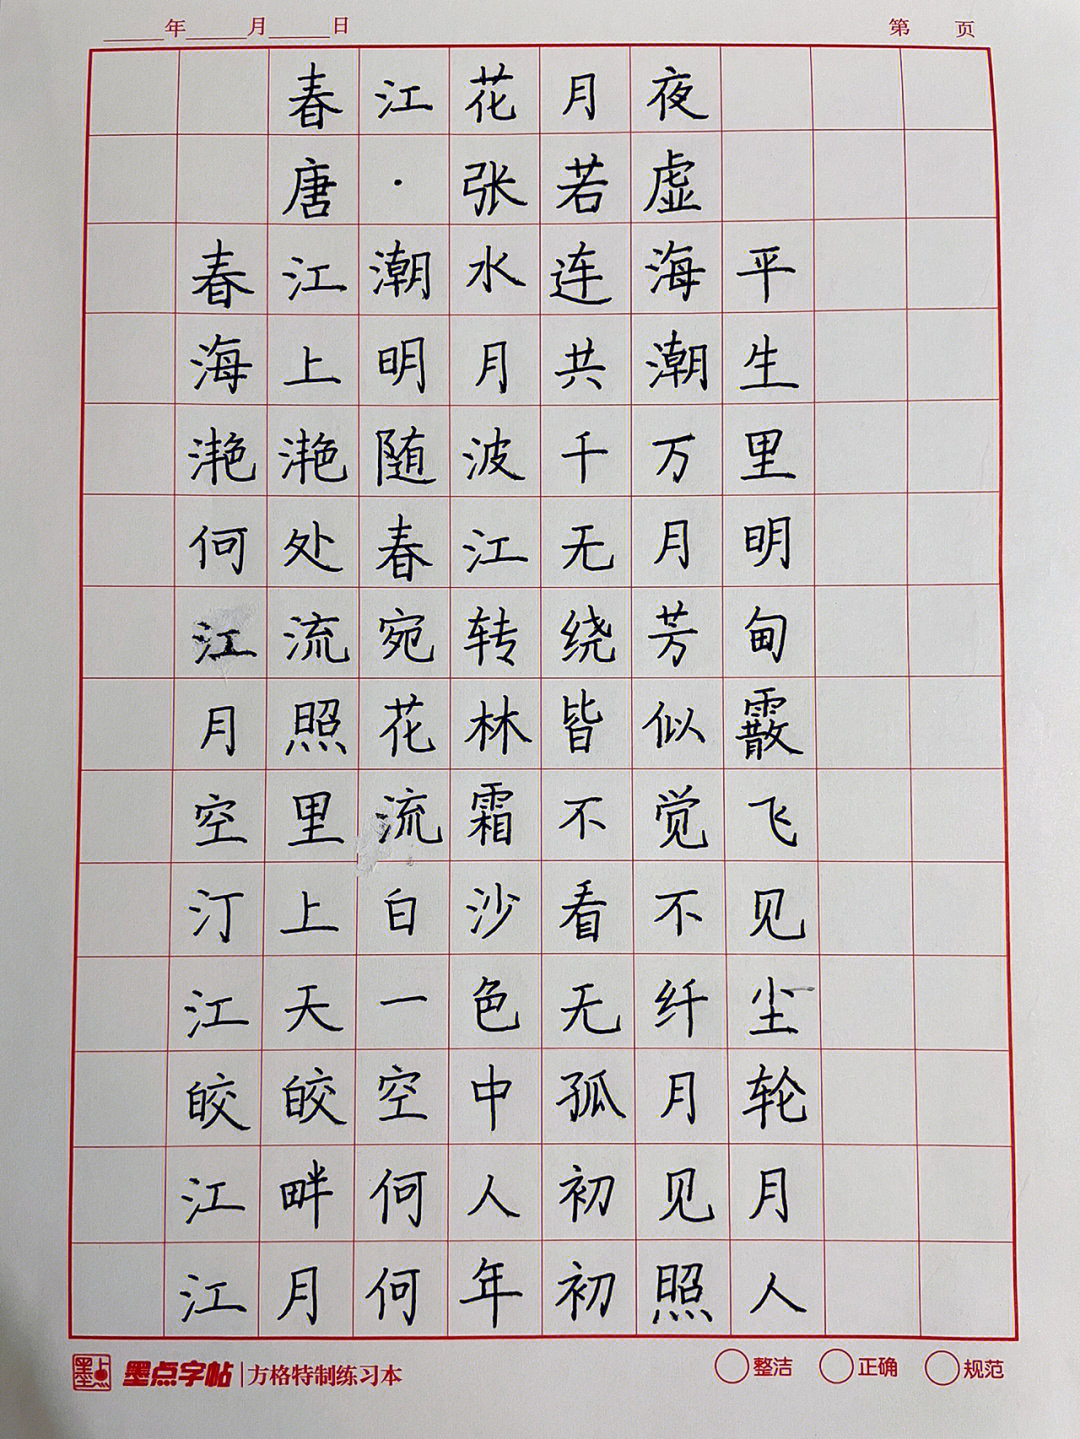 年 月 日 第 页
春江花月夜
唐·张若虚
春江潮水连海平
海上明月共潮生
滟滟随波千万里
何处春江无月明
江流宛转绕芳甸
月照花林皆似霰
空里流霜不觉飞
汀上白沙看不见
江天一色无纤尘
皎皎空中孤月轮
江畔何人初见月
江月何年初照人
墨点 墨点字帖 方格特制练习本 整洁 正确 规范